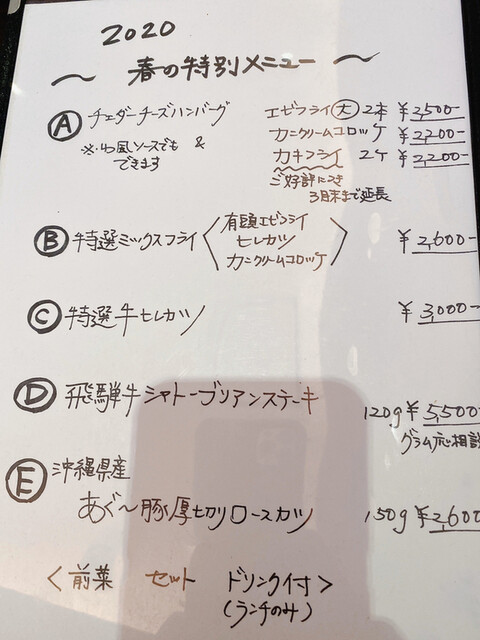 2020
〜 春の特別メニュー 〜
Ⓐ チェダーチーズハンバーグ & エビフライ㊛ 2本 ¥2,500-
カニクリームコロッケ ¥2,200-
※和風ソースでもできます カキフライ 2ケ ¥2,200-
ご好評につき
3月末まで延長
Ⓑ 特選ミックスフライ 〈有頭エビフライ
ヒレカツ 〉 ¥2,600-
カニクリームコロッケ
Ⓒ 特選牛ヒレカツ ¥3,000-
Ⓓ 飛騨牛シャトーブリアンステーキ 120g ¥5,500-
グラム応相談
Ⓔ 沖縄県産
あぐ〜豚厚切りロースカツ 150g ¥2,600-
〈前菜 セット ドリンク付〉
(ランチのみ)